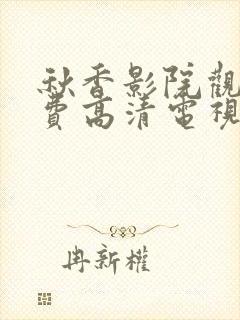 秋香影院觀
費高清電視
冉新權